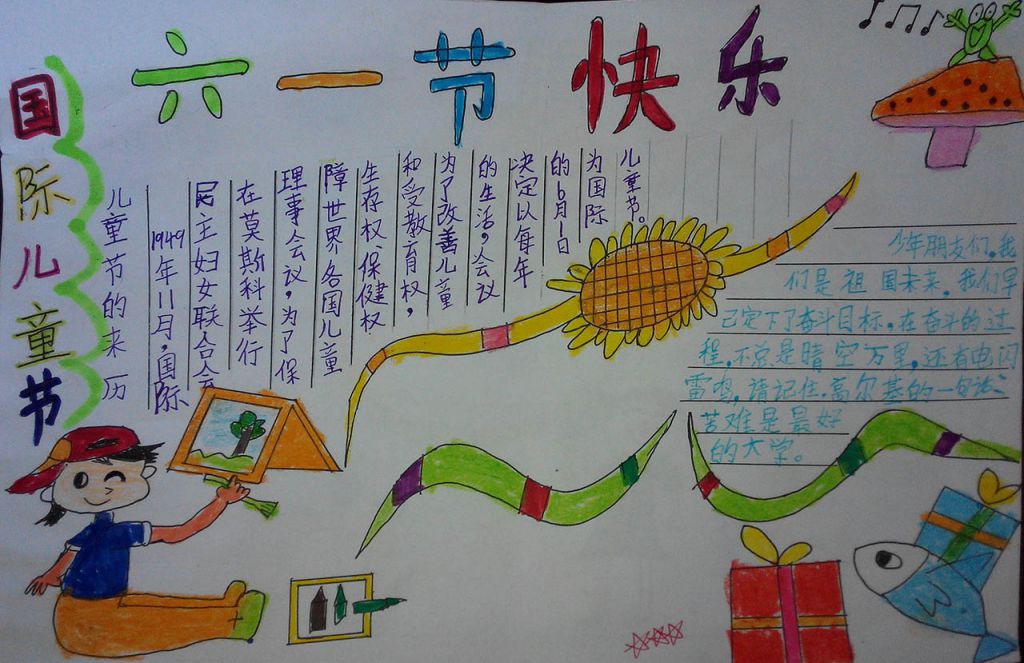 六一节快乐
国际儿童节
儿童节的来历
1949年11月，国际
民主妇女联合会
在莫斯科举行
理事会议，为了保
障世界各国儿童
生存权、保健权
和受教育权，
为了改善儿童
的生活，会议
决定以每年
的6月1日
为国际
儿童节。
少年朋友们，我
们是祖国未来，我们早
已定下了奋斗目标，在奋斗的过
程，不总是晴空万里，还有电闪
雷鸣，请记住，高尔基的一句话：
苦难是最好
的大学。